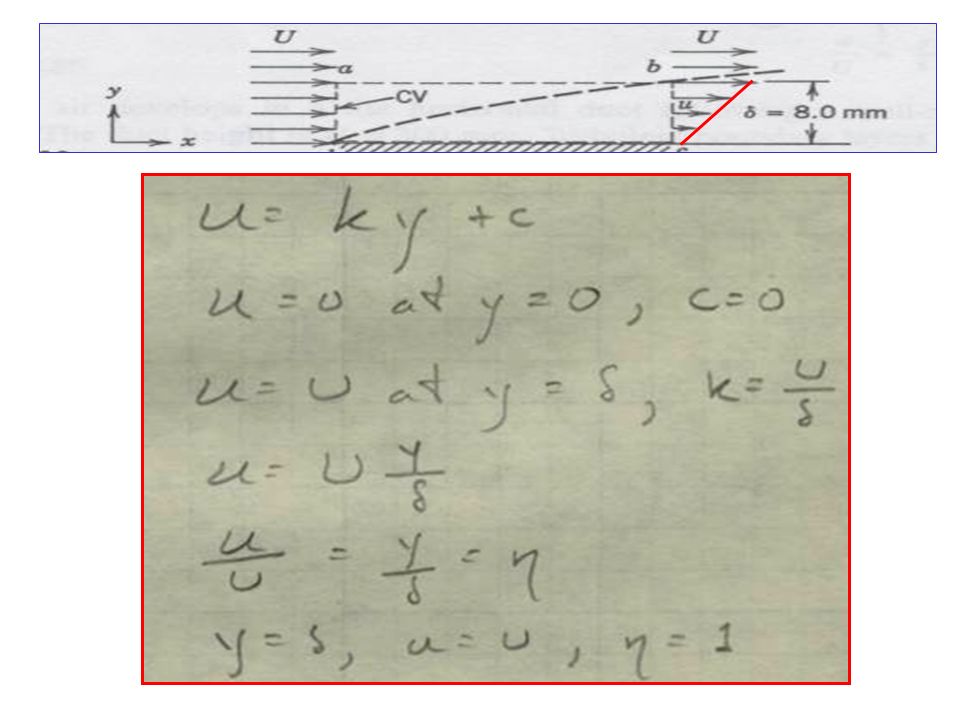 U U
a b
y CV u δ = 8.0 mm
x
u = k y + c
u = 0 at y = 0 , c = 0
u = U at y = δ , k = U/δ
u = U y/δ
u/U = y/δ = η
y = δ , u = U , η = 1